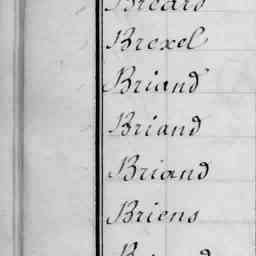 Breard
Brexel
Briand
Briand
Briand
Briens